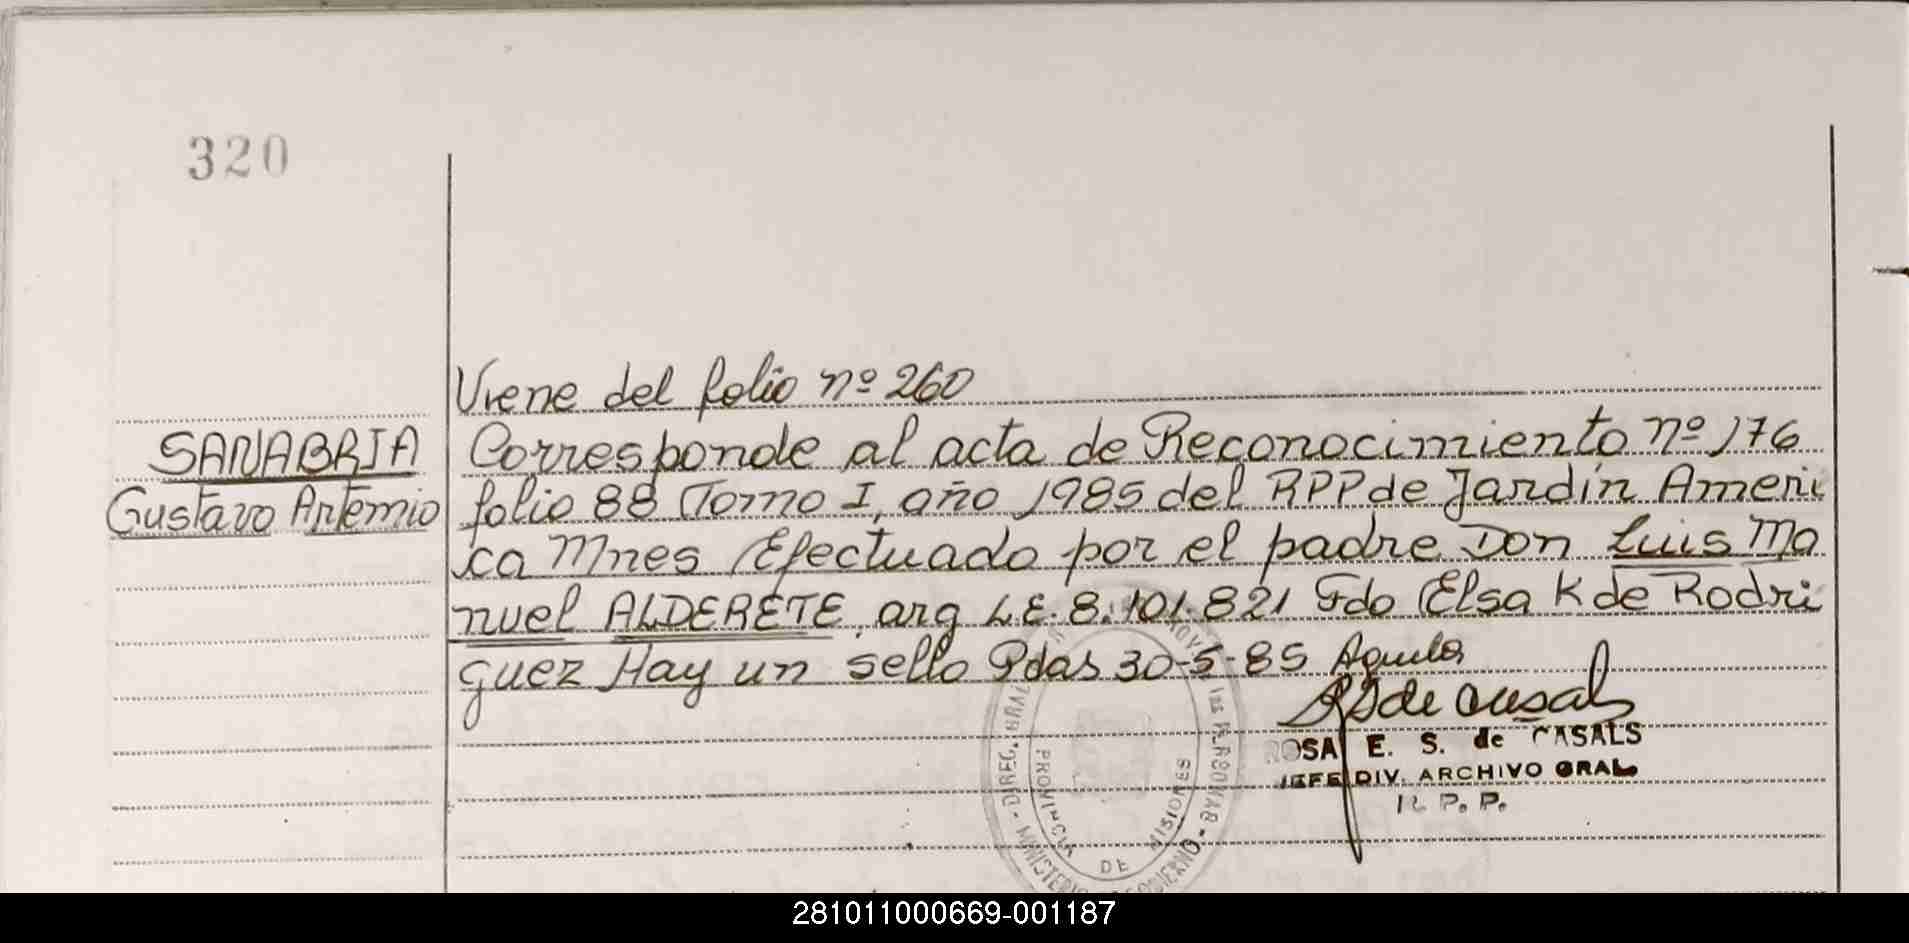 320
Viene del folio nº 260
SANABRIA
Gustavo Artemio
Corresponde al acta de Reconocimiento nº 176
folio 88 Tomo I, año 1985 del RPP de Jardín Ameri
ca Mnes Efectuado por el padre Don Luis Ma
nuel ALDERETE, arg L.E. 8.101.821 Fdo Elsa K de Rodri
guez Hay un sello Pdas 30-5-85
de Casals
ROSA E. S. de CASALS
JEFE DIV. ARCHIVO GRAL
R. P. P.
DIREC. GRAL
LAS PERSONAS - MINISTERIO DE GOBIERNO -
PROVINCIA DE MISIONES
281011000669-001187